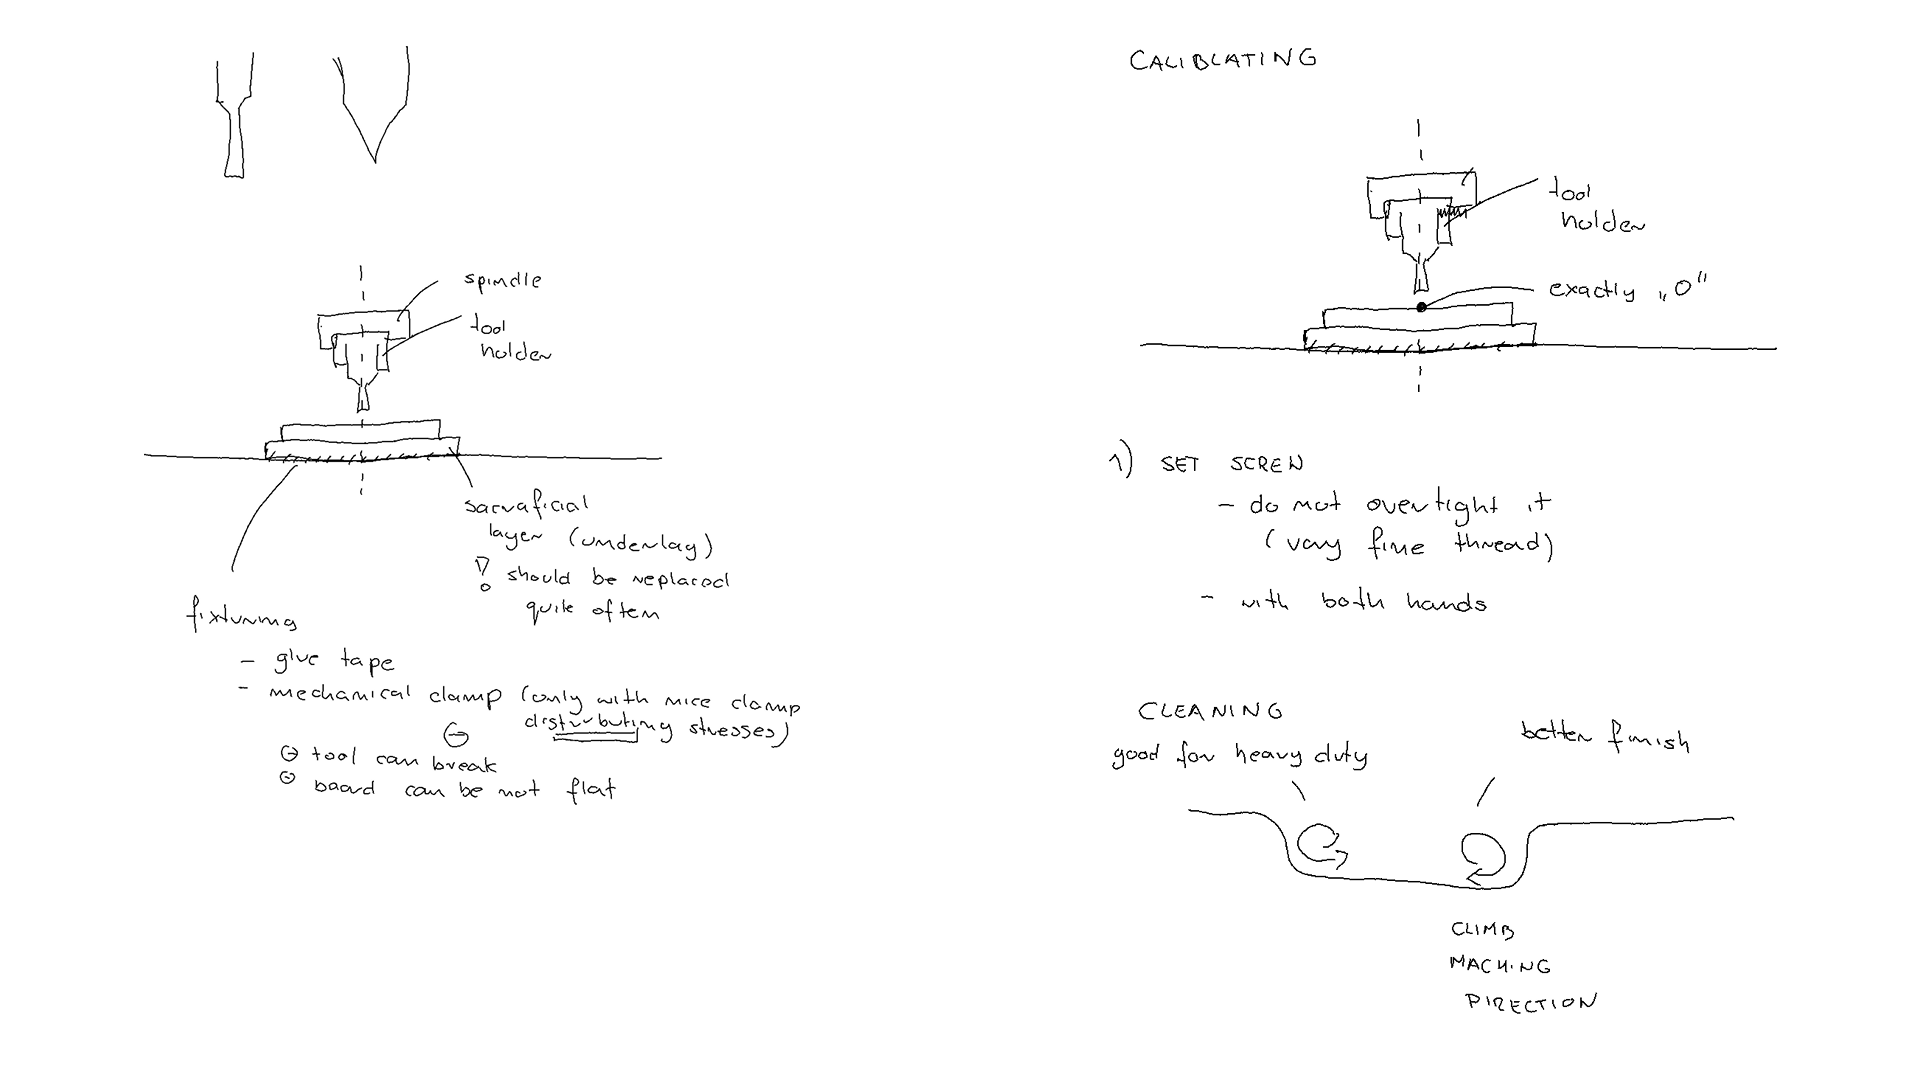 spindle
tool
holder
sacraficial
layer (underlay)
! should be replaced
quite often
fixturing
- glue tape
- mechanical clamp (only with nice clamp
distributing stresses)
⊖
⊖ tool can break
⊖ board can be not flat
CALIBLATING
tool
holder
exactly „0"
1) SET SCREW
- do not overtight it
(very fine thread)
- with both hands
CLEANING
good for heavy duty
better finish
CLIMB
MACHING
DIRECTION